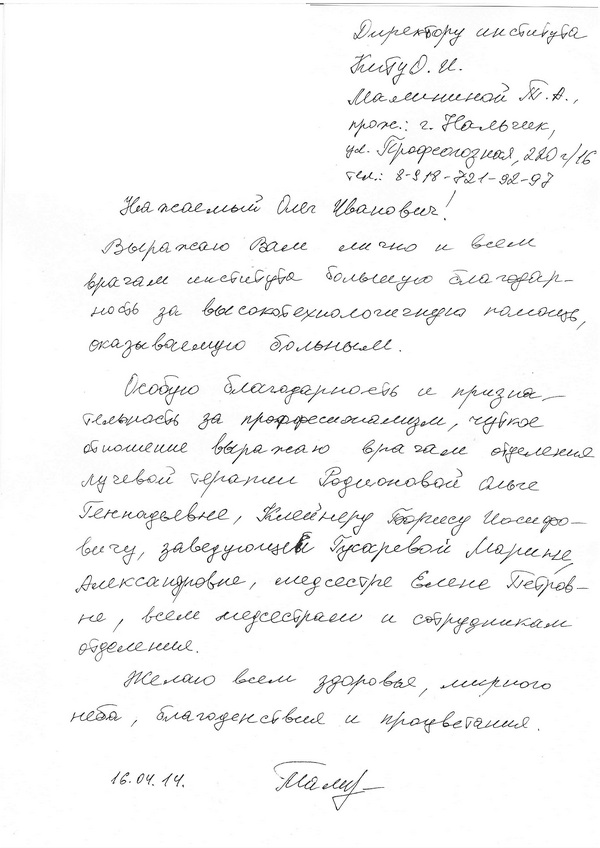 Директору института
Киту О. И.
Малининой Т. А.,
прож.: г. Нальчик,
ул. Профсоюзная, 220г/16
тел.: 8-918-721-92-97
Уважаемый Олег Иванович!
Выражаю Вам лично и всем
врачам института большую благодар-
ность за высокотехнологичную помощь,
оказываемую больным.
Особую благодарность и призна-
тельность за профессионализм, чуткое
отношение выражаю врачам отделения
лучевой терапии Родионовой Ольге
Геннадьевне, Клейнеру Борису Иосифо-
вичу, заведующей Гусаревой Марине
Александровне, медсестре Елене Петров-
не, всем медсестрам и сотрудникам
отделения.
Желаю всем здоровья, мирного
неба, благоденствия и процветания.
16.04.14.